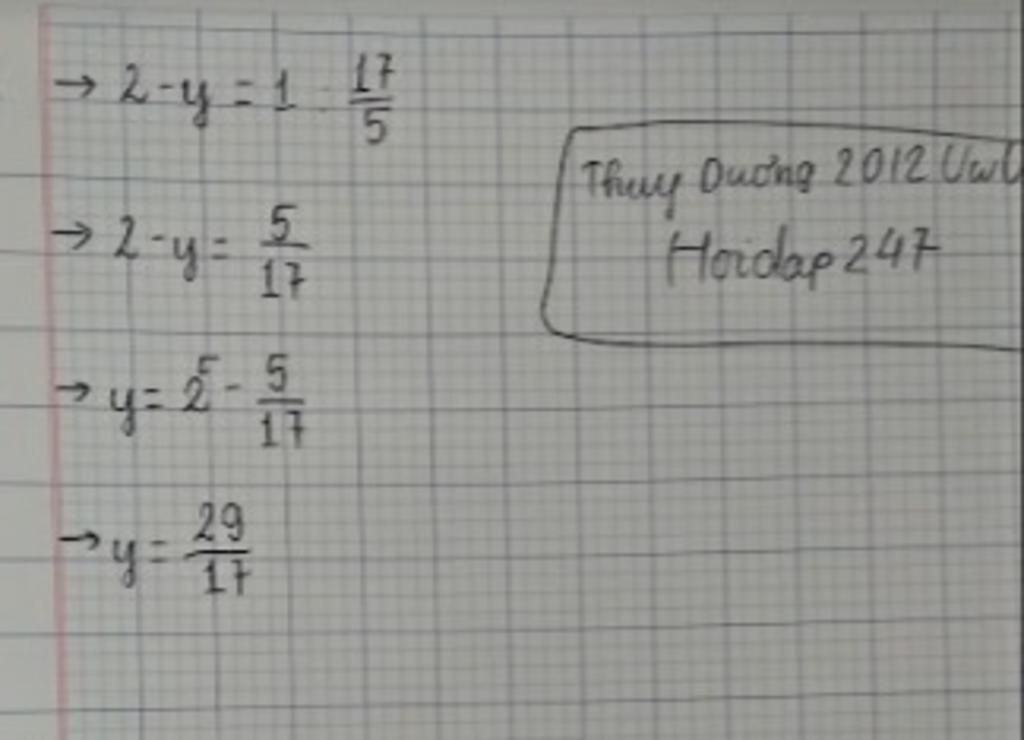 → 2 - y = 1 : 17/5
→ 2 - y = 5/17
→ y = 2 - 5/17
→ y = 29/17
Thuy Dương 2012 UwU
Hoidap 247